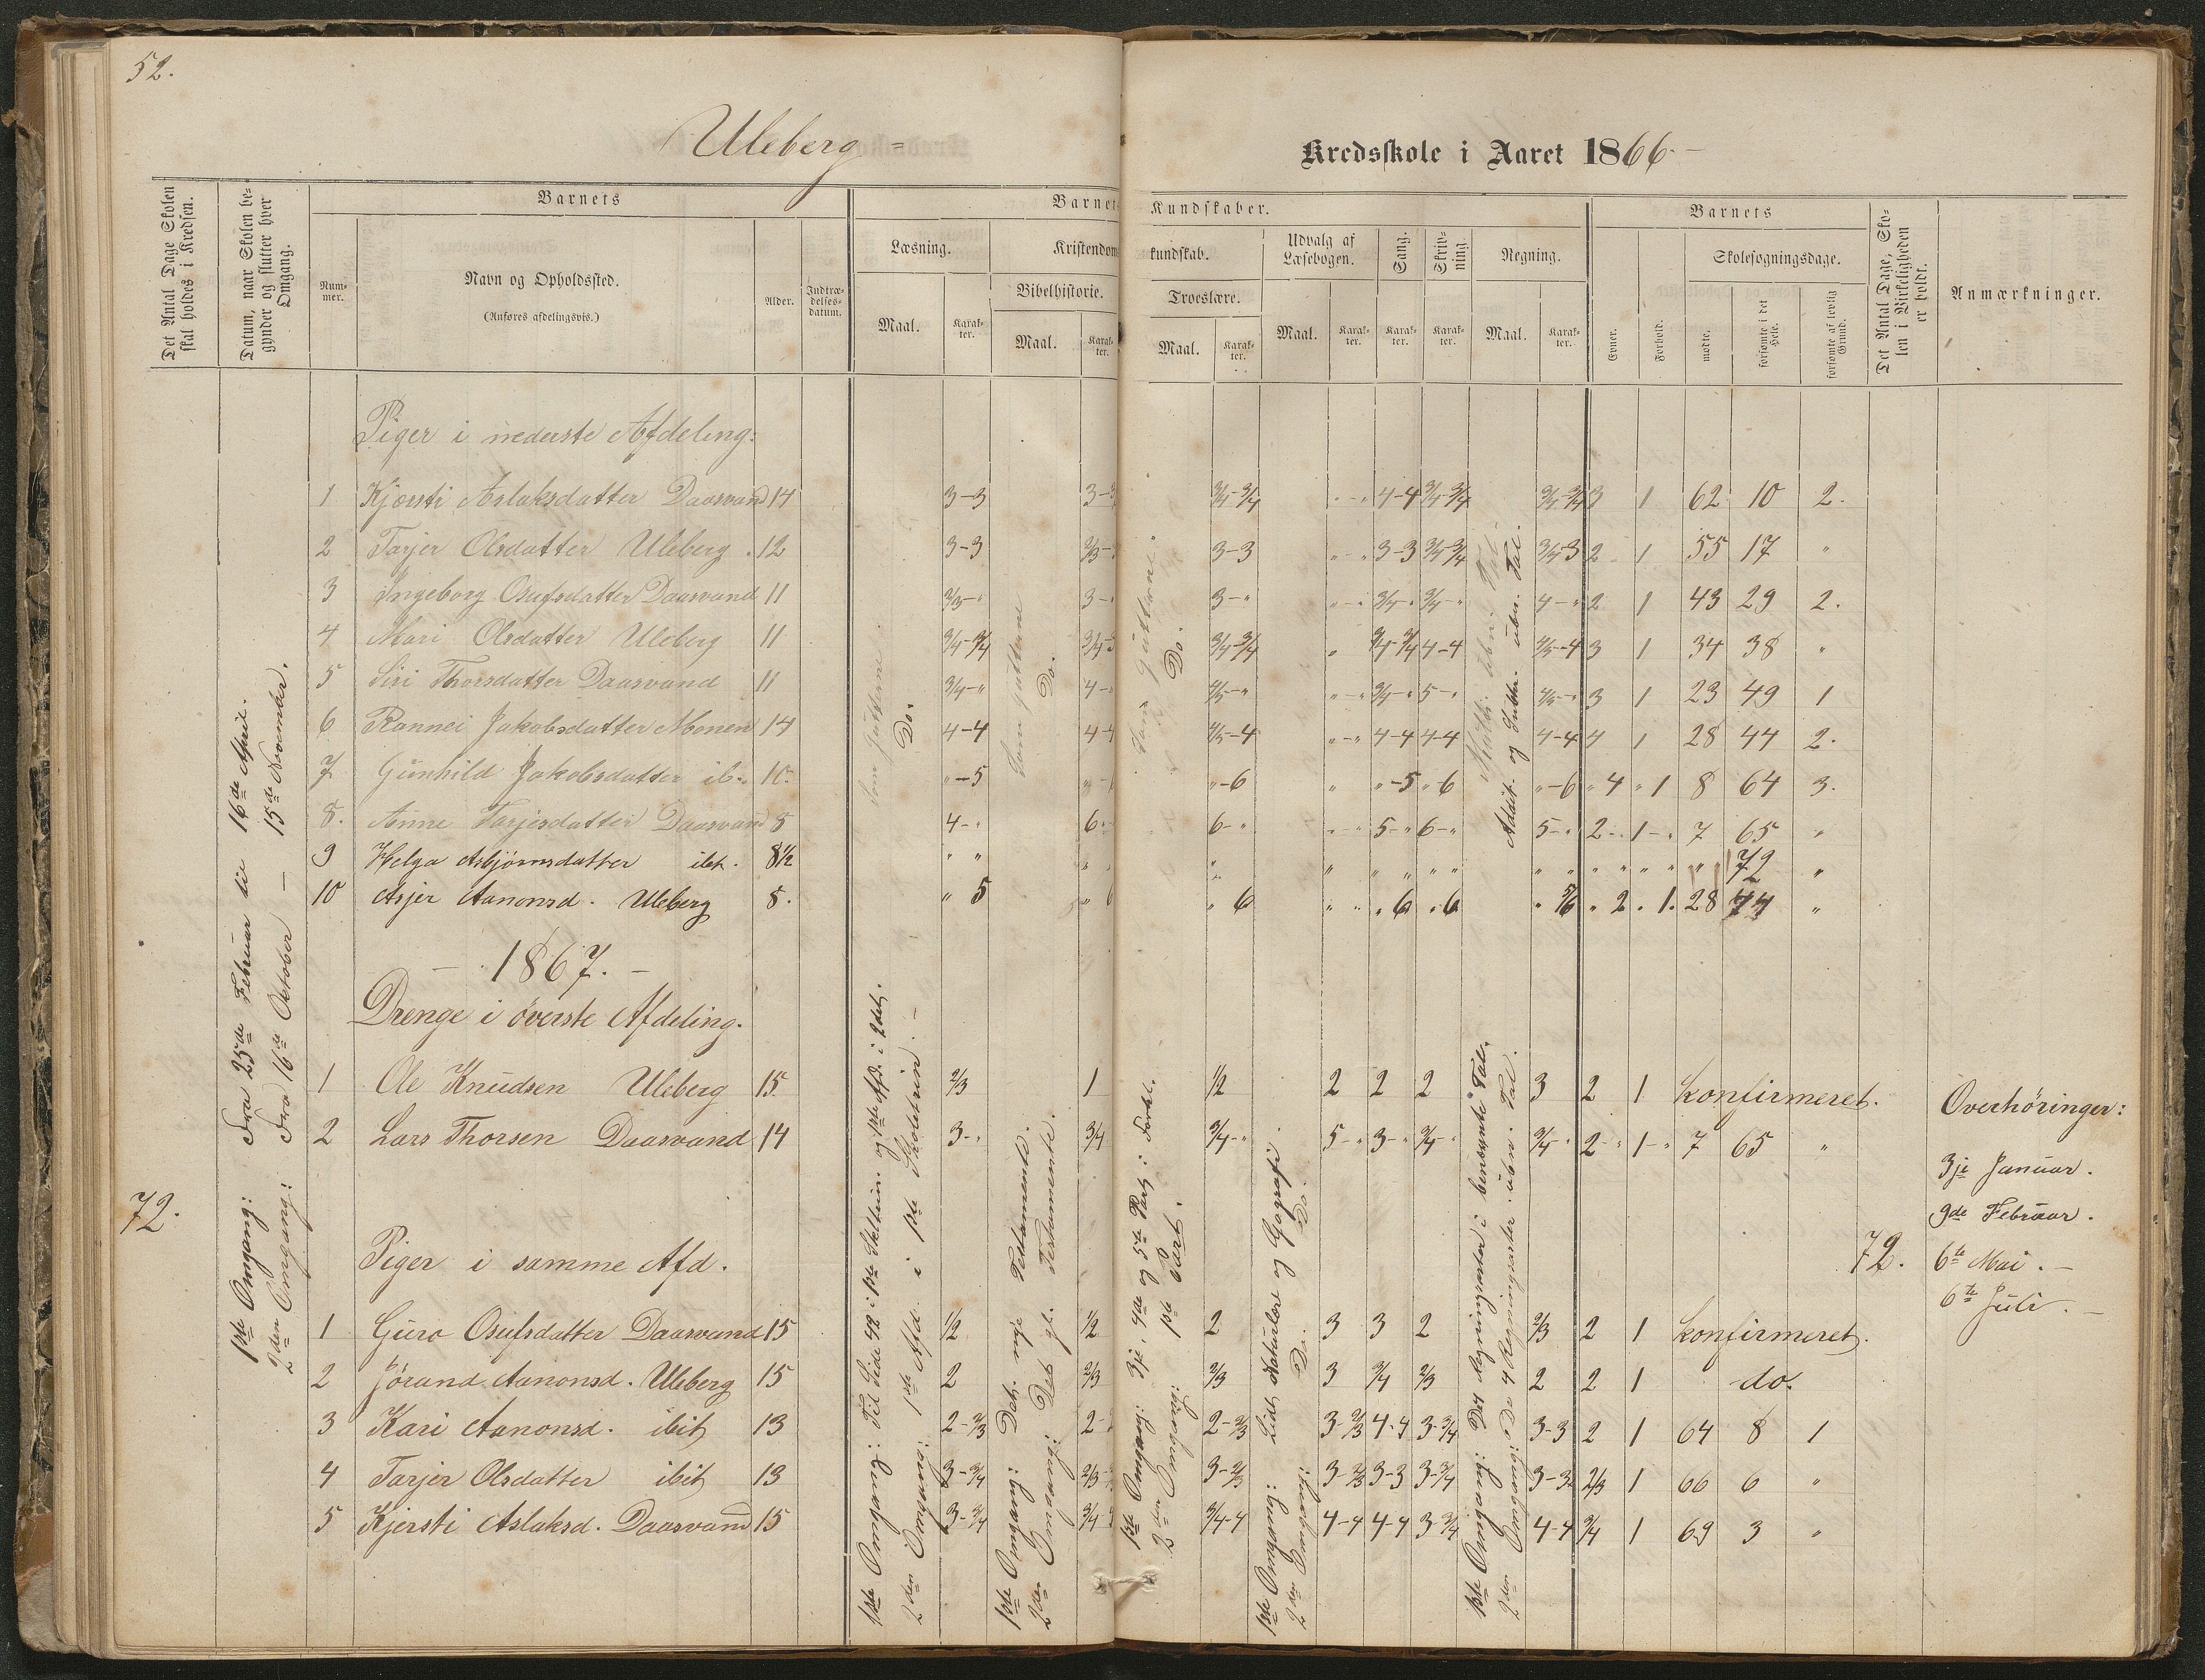 52.
Uleberg =
Kredsskole i Aaret 1866 -
Det Antal Dage Skolen skal holdes i Kredsen.
Datum, naar Skolen begynder og slutter hver Omgang.
Barnets
Num-mer.
Navn og Opholdssted.
(Anføres afdelingsvis.)
Alder.
Indtræ-delses-datum.
Barnets
Kundskaber.
Læsning.
Kristendoms
kundskab.
Udvalg af Læsebogen.
Sang.
Skriv-ning.
Regning.
Bibelhistorie.
Troeslære.
Maal.
Karak-ter.
Maal.
Karak-ter.
Maal.
Karak-ter.
Maal.
Karak-ter.
Karak-ter.
Karak-ter.
Maal.
Karak-ter.
Barnets
Evner.
Forhold.
Skolesøgningsdage.
mødte.
forsømte i det Hele.
forsømte af lovlig Grund.
Det Antal Dage, Sko-len i Virkeligheden er holdt.
Anmærkninger.
Piger i nederste Afdeling:
1 Kjersti Aslaksdatter Daasvand 14 3-3 3/4-3/4 "-" 4-4 3/4-3/4 3/4-3/4 3 1 62 10 2.
2 Tarjer Olsdatter Uleberg . 12 3-3 2/3- 3-3 "-" 3-3 3/4-3/4 3/4-3 2 1 55 17 "
3 Ingeborg Osufsdatter Daasvand 11 2/3-" 3-" 3-" "-" 3/4-" 3/4-" 4-" 2 1 43 29 2.
4 Mari Olsdatter Uleberg 11 3/4-3/4 3/4- 3/4-3/4 " 3/4-3/4 4-4 4/5-4 3 1 34 38 "
5 Siri Thorsdatter Daasvand 11 3/4-" 4-" 4/5-" "-" 3/4-" 5-" 4/5-" 3 1 23 49 1
6 Rannei Jakobsdatter Monen 14 4-4 4-4 4/5-4 "-" 4-4 4-4 4-4 4 1 28 44 2.
7 Gunhild Jakobsdatter ib. 10. "-5 "-6 " "-5 "6 "-6 "4 "1 8 64 3.
8. Anne Tarjesdatter Daasvand 8 4-" 6-" 6-" "-" 5-" 6-" 5-" 2-" 1-" 7 65 "
9 Helga Asbjørnsdatter ibt. 8½ " " " " " " " " " 72 "
10 Asjer Aanonsd. Uleberg 8. " 5 " 6 " 6 " " "6 "6 " 5/6 " 2 . 1. 28 44 "
Som Gutterne
Do.
Som Gutterne
Do.
Som Gutterne
Do.
Addit. og Subtr. ubn. Tal.
- 1867. -
Drenge i øverste Afdeling.
1 Ole Knudsen Uleberg 15. 2/3 1 1/2 2 2 2 3 2 1 konfirmeret.
2 Lars Thorsen Daasvand 14 3-" 3/4 3/4-" 5-" 3-" 3/4-" 3/4-" 2-" 1-" 7 65 "
Piger i samme Afd.
1 Guro Osulsdatter Daasvand 15 1/2 1/2 2 3 3 2 2/3 2 1 konfirmeret.
2 Jørund Aanonsd. Uleberg 15 2 2/3 2/3 3 3/4 2/3 2 2 1 do.
3 Kari Aanonsd. ibit 13 2-2/3 2- 2-2/3 3-2/3 4-4 3-3/4 3-3 2 1 64 8 1
4 Tarjer Olsdatter ibit 13 3-3/4 2/3- 3-2/3 3-2/3 3-3 3-3/4 3-3 2/3 1 66 6 "
5 Kjersti Aslaksd. Daasvand 15 3-3/4 3/4- 3/4-4 4-4 4-4 3-3/4 4-4 3/4 1 69 3 "
72.
1ste Omgang: Fra 25de Februar til 16de April.
2den Omgang: Fra 16de October - 15de November.
1ste Omgang: Til Side 48 i 1ste Skoletrin og 1ste Afd. i 2det.
2den Omgang: 1ste Afd. i 1ste Skoletrin. -
1ste Omgang: Det nye Testamente.
2den Omgang: Det gl. Testamente.
1ste Omgang: 3je, 4de og 5te Part i Forkl.
2den Omgang: 1ste Part.
1ste Omgang: Lidt Naturlære og Geografi.
2den Omgang: Do. Do.
1ste Omgang: De 4 Regningsarter i benævnte Tal.
2den Omgang: De 4 Regningsarter i ubn. Tal.
72.
Overhøringer:
3je Januar.
9de Februar.
6te Mai. -
6te Juli. -